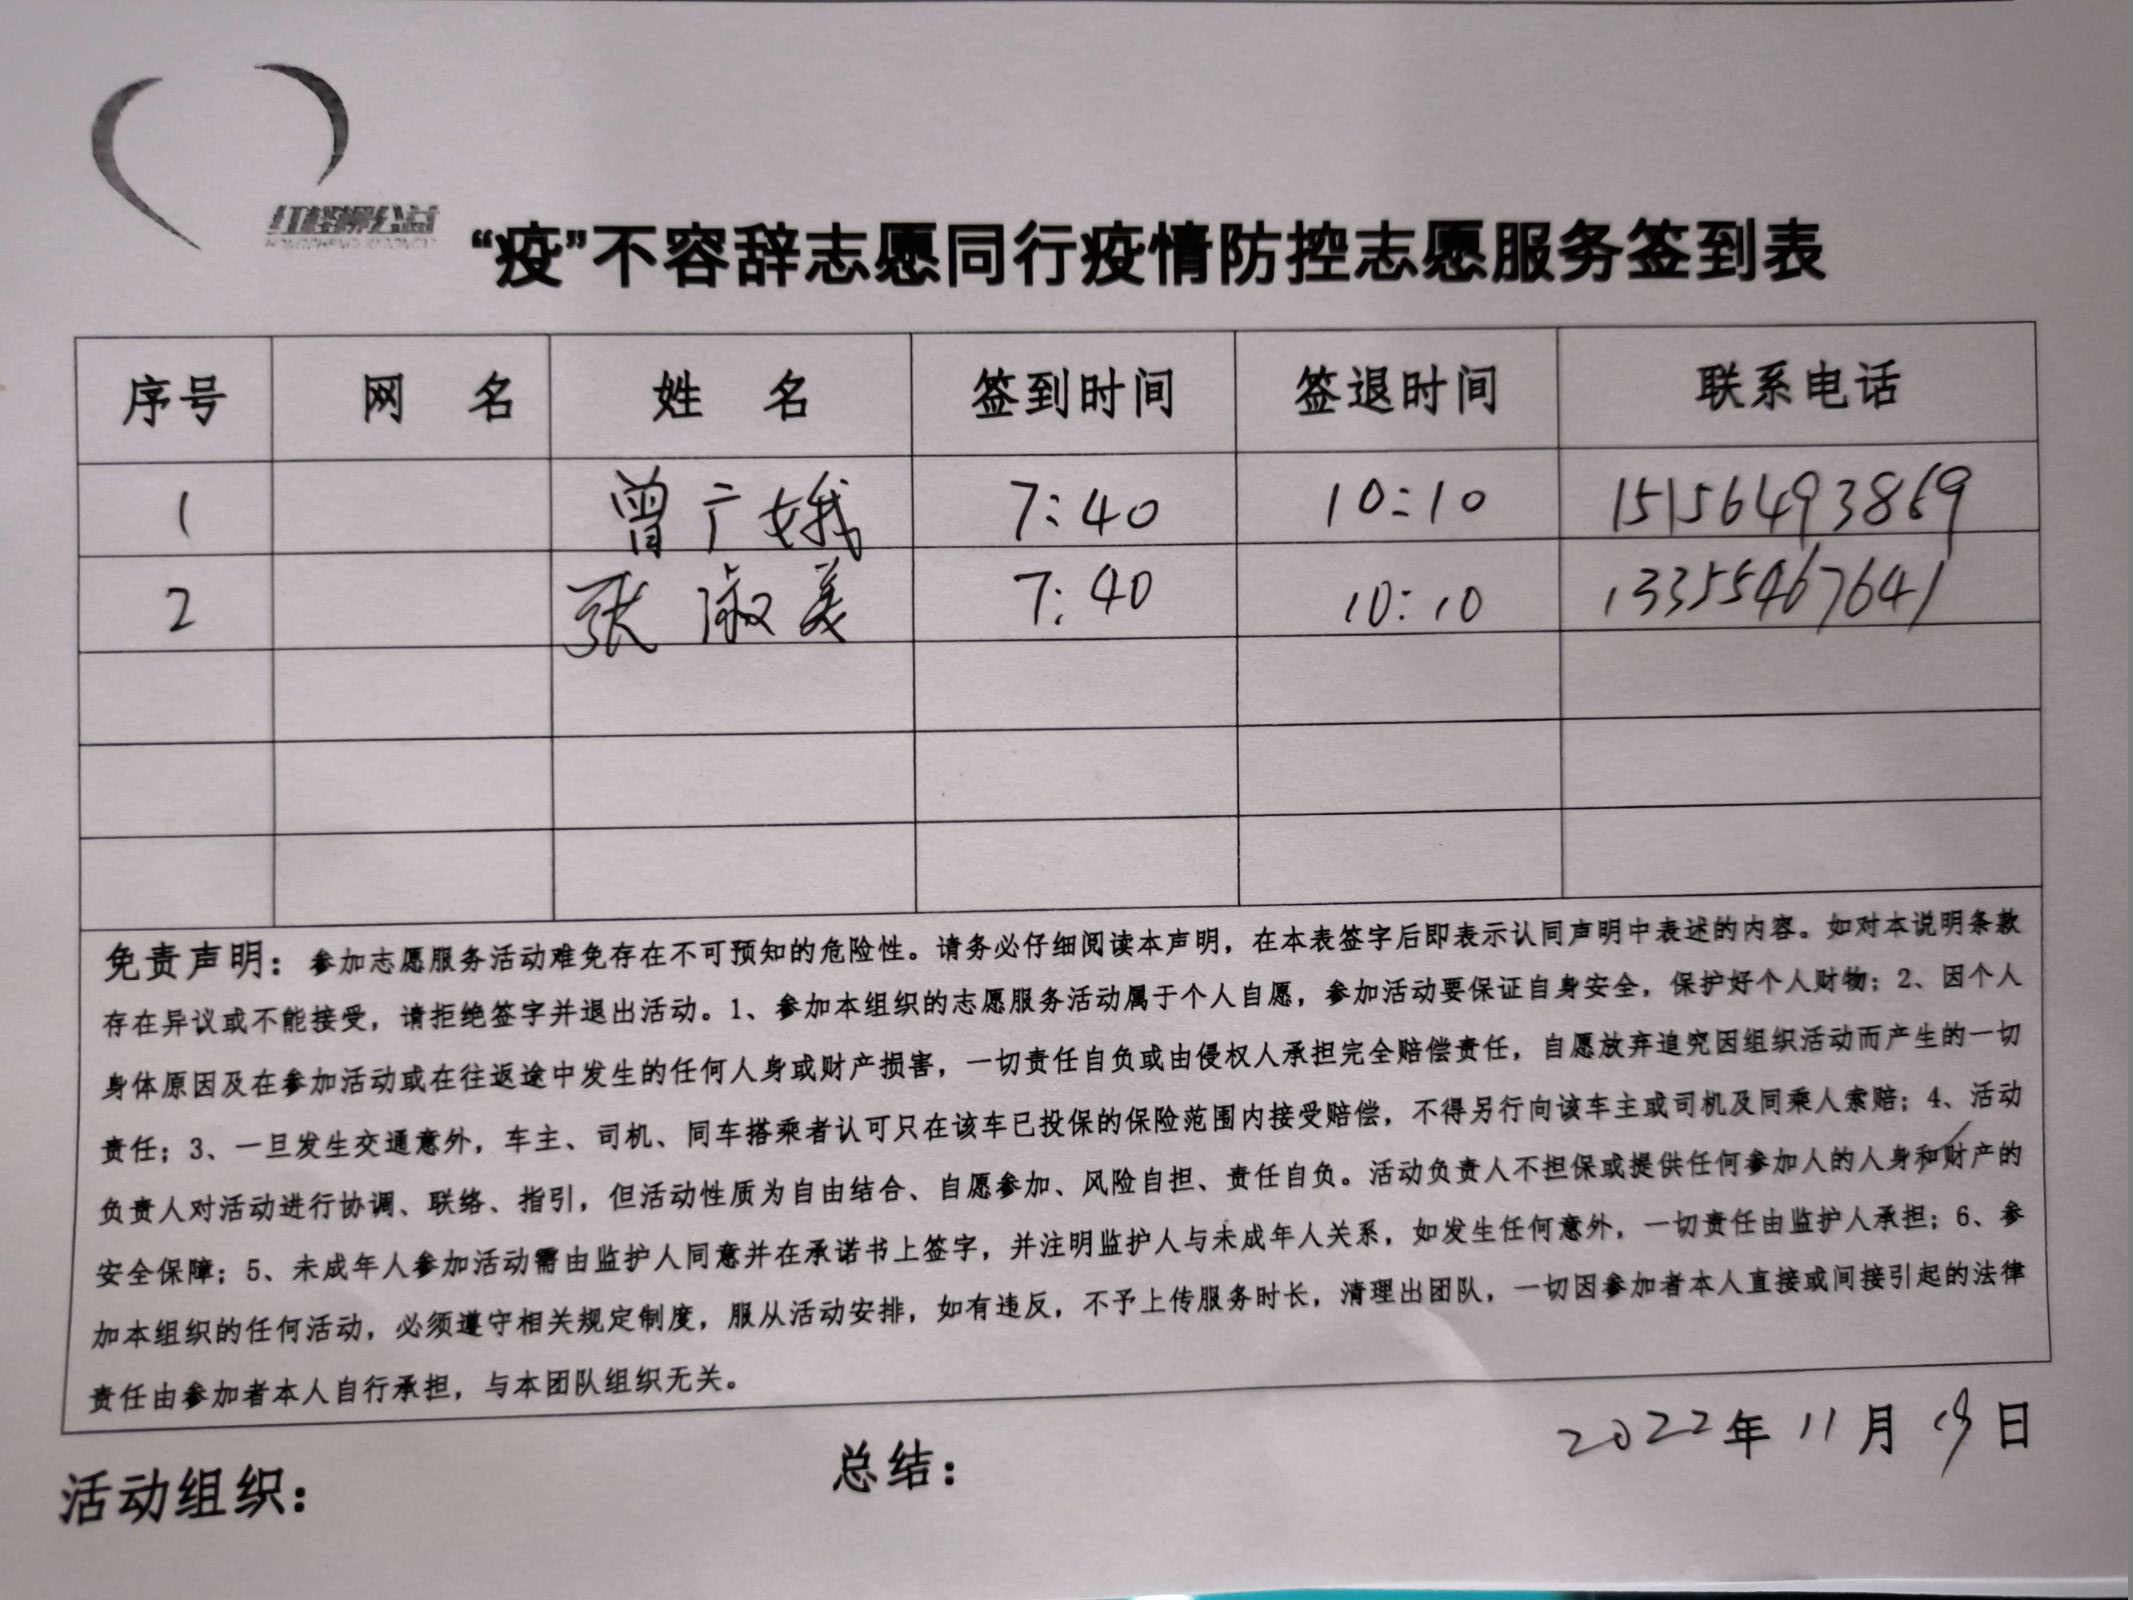 红柽柳公益
“疫”不容辞志愿同行疫情防控志愿服务签到表
序号 网 名 姓 名 签到时间 签退时间 联系电话
1 曾广娥 7:40 10:10 15156493869
2 张淑美 7:40 10:10 13355467641
免责声明：参加志愿服务活动难免存在不可预知的危险性。请务必仔细阅读本声明，在本表签字后即表示认同声明中表述的内容。如对本说明条款
存在异议或不能接受，请拒绝签字并退出活动。1、参加本组织的志愿服务活动属于个人自愿，参加活动要保证自身安全，保护好个人财物；2、因个人
身体原因及在参加活动或在往返途中发生的任何人身或财产损害，一切责任自负或由侵权人承担完全赔偿责任，自愿放弃追究因组织活动而产生的一切
责任；3、一旦发生交通意外，车主、司机、同车搭乘者认可只在该车已投保的保险范围内接受赔偿，不得另行向该车主或司机及同乘人索赔；4、活动
负责人对活动进行协调、联络、指引，但活动性质为自由结合、自愿参加、风险自担、责任自负。活动负责人不担保或提供任何参加人的人身和财产的
安全保障；5、未成年人参加活动需由监护人同意并在承诺书上签字，并注明监护人与未成年人关系，如发生任何意外，一切责任由监护人承担；6、参
加本组织的任何活动，必须遵守相关规定制度，服从活动安排，如有违反，不予上传服务时长，清理出团队，一切因参加者本人直接或间接引起的法律
责任由参加者本人自行承担，与本团队组织无关。
2022年11月19日
活动组织： 总结：